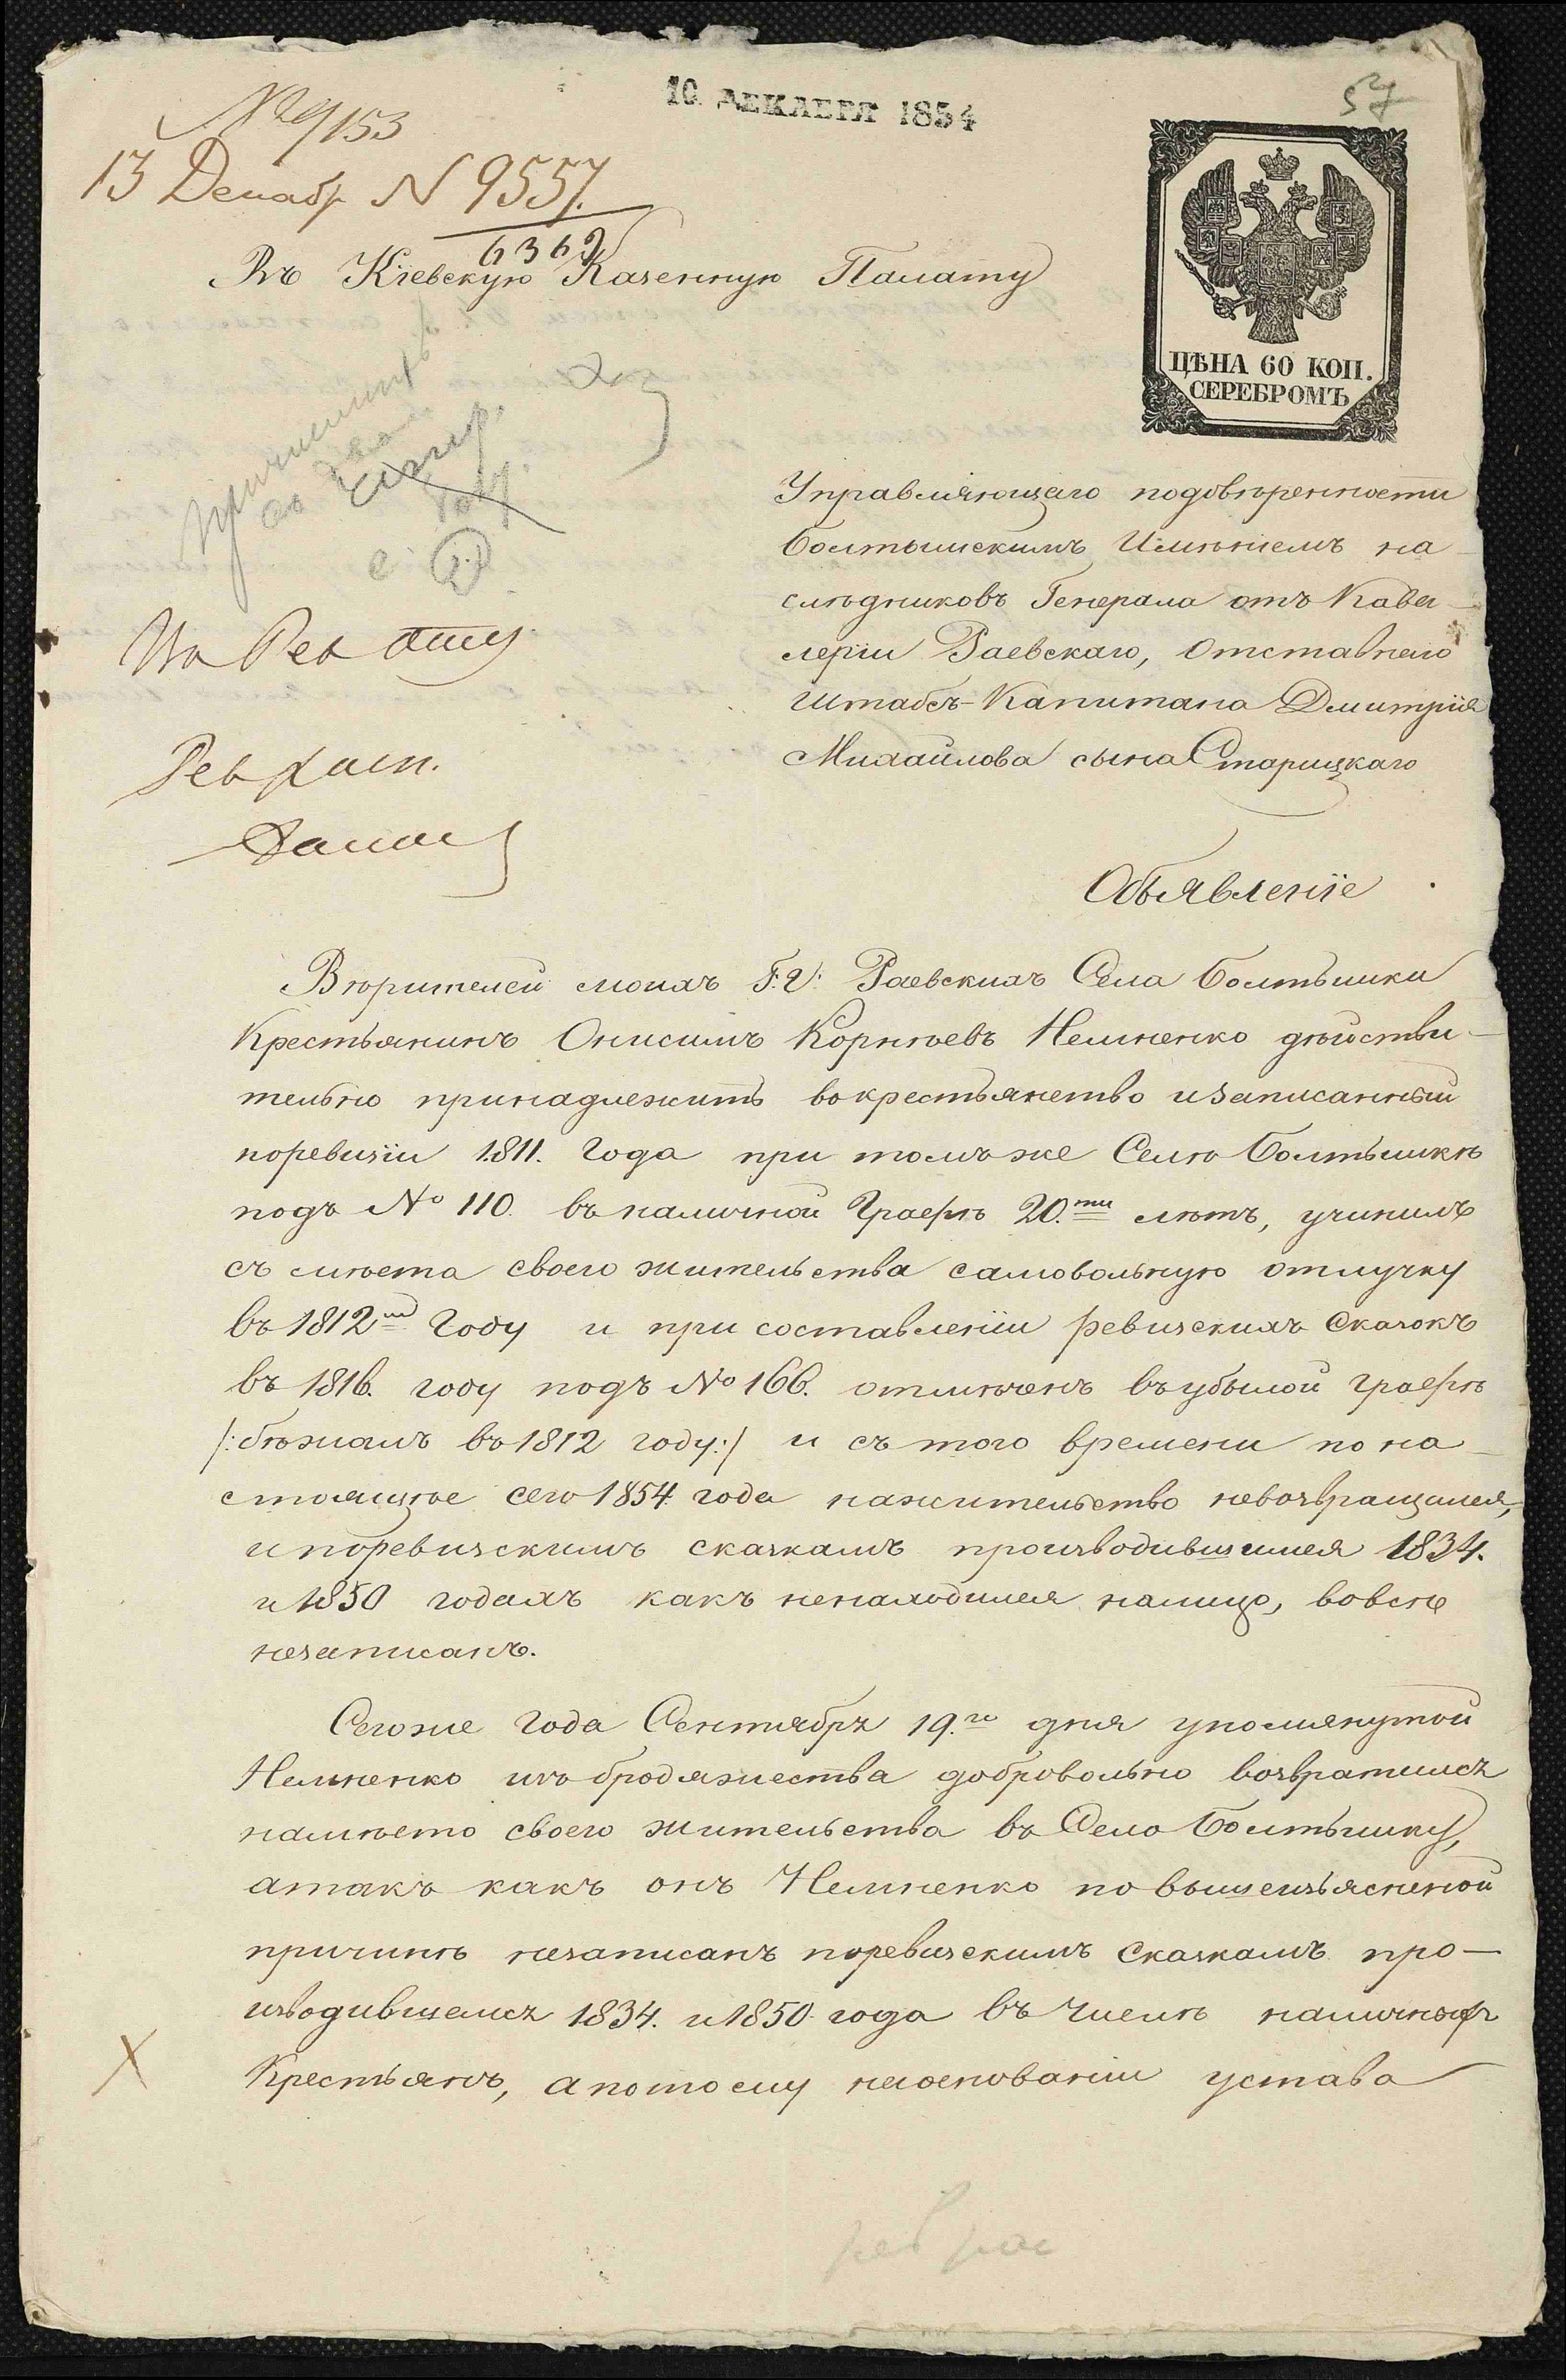 10 ДЕКАБРЯ 1854
57
№ 9/153
13 Декабр N 9557.
6362
Въ Кіевскую Казенную Палату
ЦѢНА 60 КОП.
СЕРЕБРОМЪ
Управляющаго подовѣренности
Болтышскимъ Имѣніемъ на-
слѣдниковъ Генерала отъ Кава-
леріи Раевскаго, Отставнаго
Штабсъ-Капитана Дмитрія
Михайлова сына Старицкаго
Объявленіе
Вѣрителей моихъ Г:г: Раевскихъ Села Болтышки
Крестьянинъ Онисимъ Корнѣевъ Немненко дѣйстви-
тельно принадлежитъ вокрестьянство изаписанный
поревизіи 1811. Года при томъ же Селѣ Болтышкѣ
подъ № 110. въ наличной Графѣ 20.ти лѣтъ, учинилъ
съ мѣста своего жительства самовольную отлучку
въ 1812м Году и при составленіи ревизскихъ Сказокъ
въ 1816. году подъ № 166. отмѣченъ въубылой Графѣ
/:бѣжалъ въ 1812 году:/ и съ того времени по на-
стоящѣе сего 1854 года нажительство невозвращался,
и поревизскимъ сказкамъ производившимся 1834.
и 1850 годахъ какъ ненаходился налицо, вовсе
незаписанъ.
Сегоже Года Сентября 19.го дня упомянутой
Немненко изъ бродяжества добровольно возвратился
намѣсто своего жительства въ Село Болтышку,
атакъ какъ онъ Немненко по вышеизъясненой
причинѣ незаписанъ поревизскимъ Сказкамъ про-
изводившемся 1834. и 1850 года въ числѣ наличныхъ
Крестьянъ, а потому наоснованіи устава